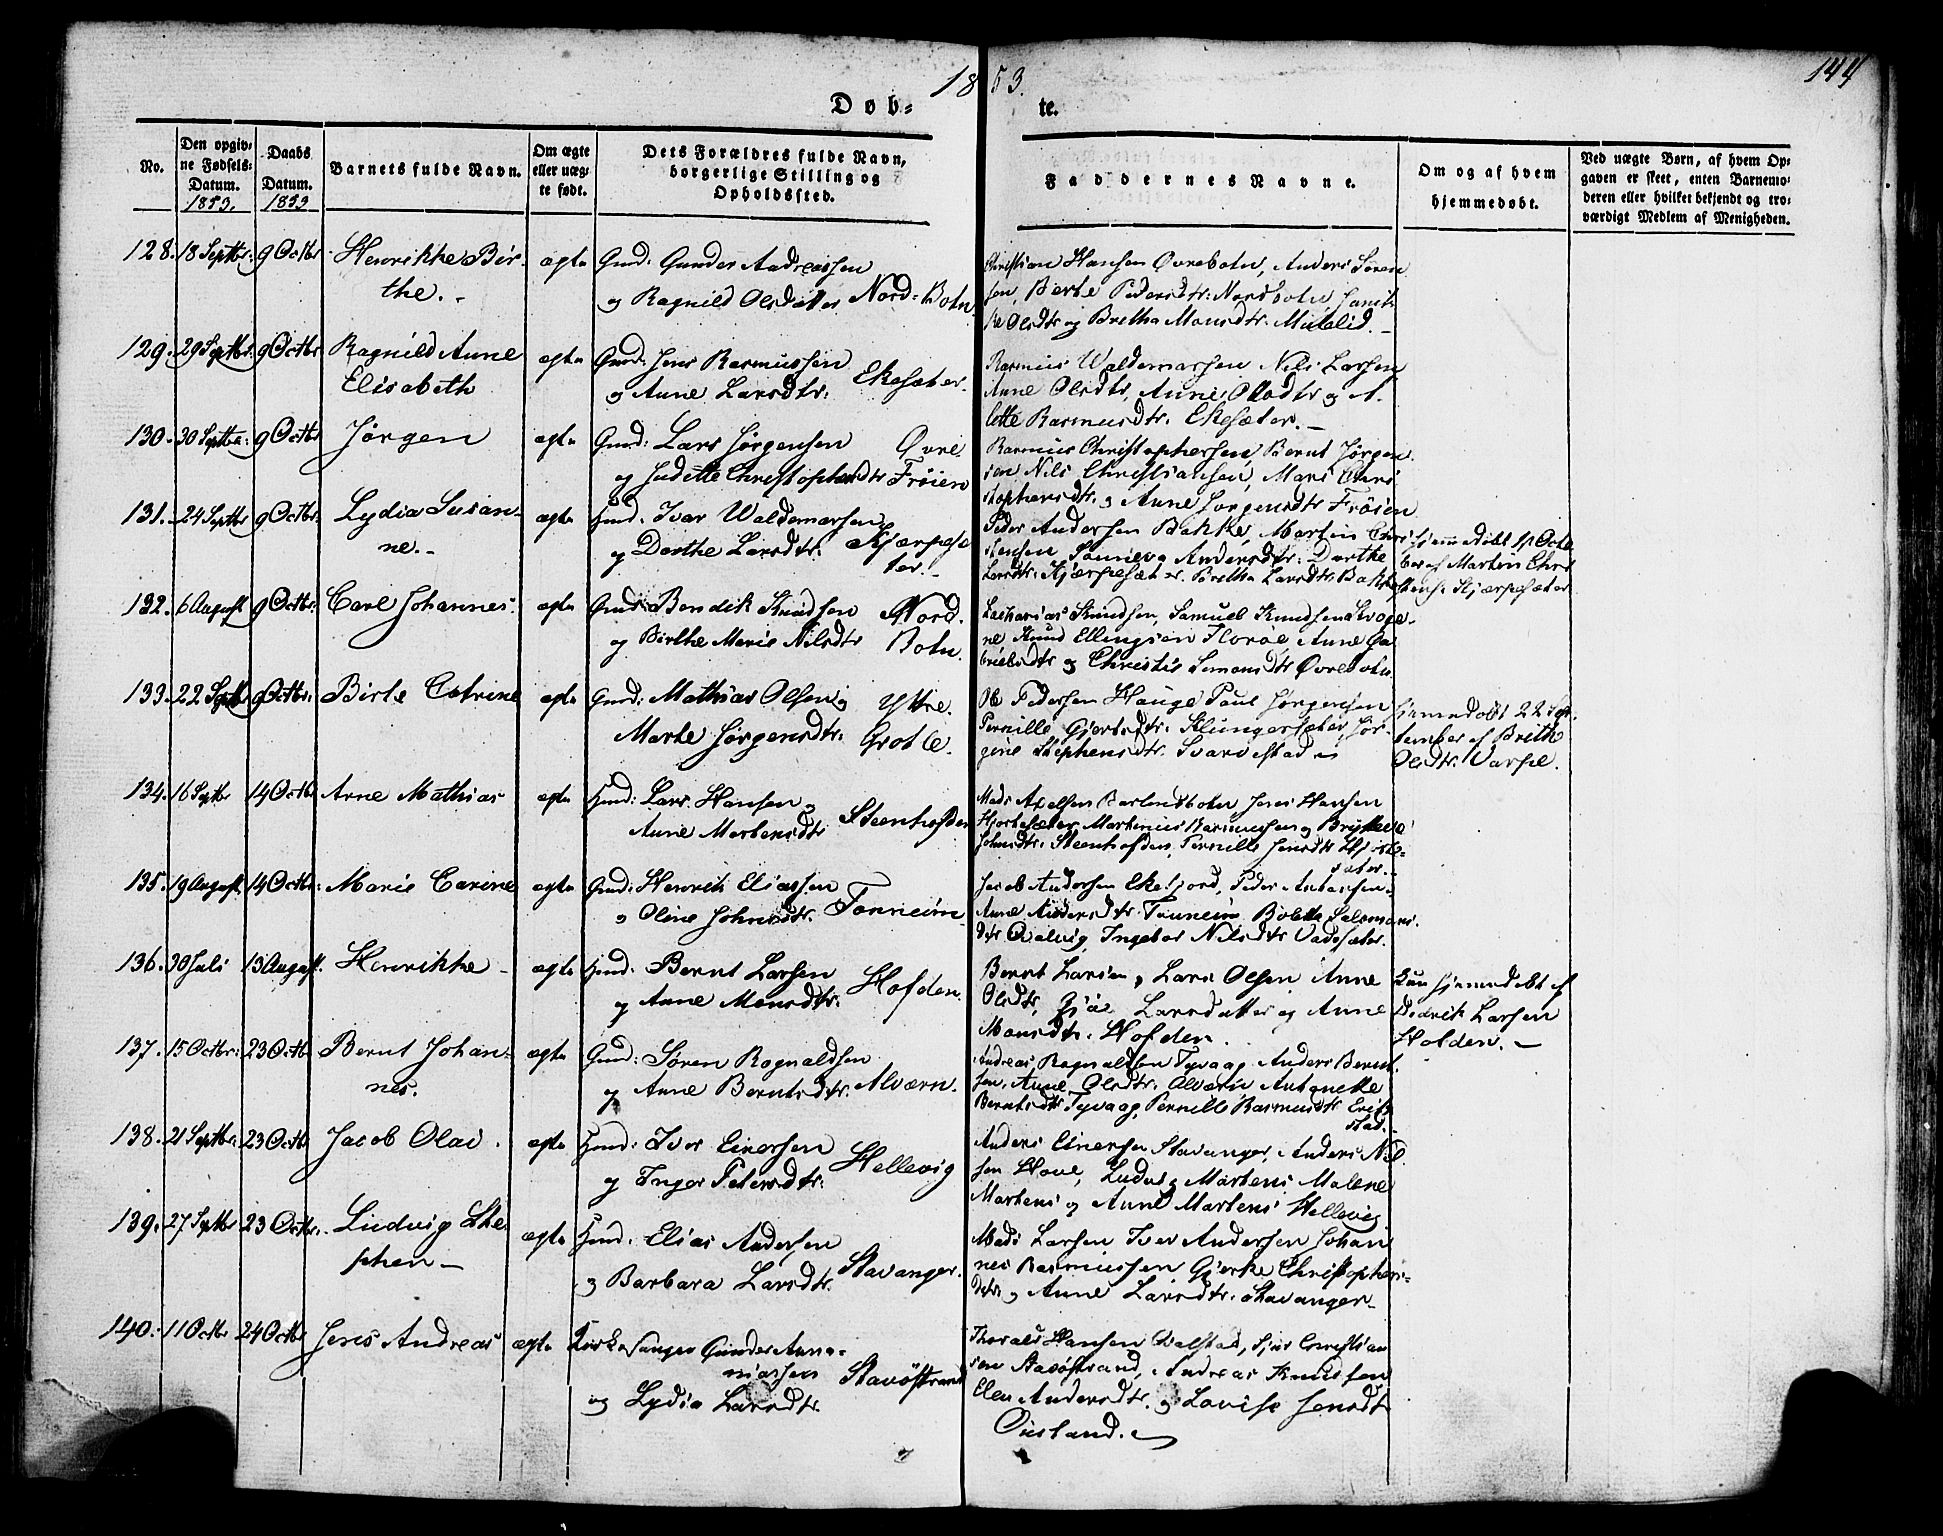 1853.
144
Døb-te.
No.
Den opgiv-
ne Fødsels-
Datum.
1853.
Daabs
Datum.
1853
Barnets fulde Navn.
Om ægte
eller uæg-
te født.
Dets Forældres fulde Navn,
borgerlige Stilling og
Opholdssted.
Faddernes Navne.
Om og af hvem
hjemmedøbt.
Ved uægte Børn, af hvem Op-
gaven er skeet, enten Barnemo-
deren eller hvilket bekjendt og tro-
værdigt Medlem af Menigheden.
128. 18 Septbr. 9 Octbr Henrikke Bir-
the.
ægte
Gmd: Gunder Andreassen
og Ragnild Olsdatter Nord-Botn
Christian Hansen Øvrebotn, Anders Søren
sen, Berte Pedersdtr: Nordbotn
Olsdtr og Bretha Monsdtr.
129. 29 Septbr. 9 Octbr Ragnild Anne
Elisabeth
ægte
Gmd: Jens Rasmussen
og Anne Larsdtr. Ekesæter.
Rasmus Waldemarsen Nils Larsen
Anne Olsdtr, Anne Olsdtr og A-
lette Rasmusdtr. Ekesæter.
130. 30 Septbr. 9 Octbr Jørgen
ægte
Gmd: Lars Jørgensen Øvre
og Juditte Christophersdtr Frøien
Rasmus Christophersen Bernt Jørgen
sen Nils Christiansen, Mari Chri
stophersdtr. og Anne Jørgensdtr Frøien
131. 24 Septbr 9 Octbr. Lydia Susan-
ne.
ægte
Hmd: Ivar Waldemarsen
og Dorthe Larsdtr. Kjærpesæ
ter.
Peder Andersen Bakke, Martin Chri
stensen Andersdtr: Dorthe
Larsdtr. Kjærpesæter. Bretha Larsdtr Bakke
Hjemmedøbt Octo
ber af Martin Chri
stens. Kjærpesæter
132. 6 August 9 Octbr. Carl Johannes.
ægte
Gmd: Bendik Knudsen Nord.
og Birthe Marie Nilsdtr Botn.
Zacharias Knudsen, Samuel Knudsen
Knud Ellingsen Florøe, Anne Ga
brielsdtr og Christie Simonsdtr Øvrebotn
133. 22 Septbr 9 Octbr. Birte Catrine
ægte
Gmd: Mathias Olsen og Yttre
Marte Jørgensdtr. Grotle.
Ole Pedersen Hauge Paul Jørgensen
Pernille Gjertsdtr. Klungersæter, Jør-
gine Stephensdtr. Svardestad
Hjemmedøbt 22 Sep-
tember af Brithe
Olsdtr. Varpe.
134. 16 Septbr 14 Octbr Arne Mathias
ægte
Hmd: Lars Hansen og
Anne Mortensdtr Steenhofden
Mads Axelsen Barlindbotn Jens Hansen
Hjortesæter, Martinus Rasmussen og
Johnsdtr. Steenhofden, Pernille Jensdtr Hjorte-
sæter.
135. 19 August. 14 Octbr. Marie Carine
ægte
Gmd: Henrik Eliassen
og Oline Johnsdtr. Tonneim
Jacob Andersen Ekefjord, Peder Antonsen
Anne Andersdtr Tonneim, Bolette Salomons
dtr Qvalvig, Ingebor Nilsdtr Vadesæter.
136. 30 Juli 13 August. Henrikke
ægte
Hmd: Bernt Larsen
og Anne Monsdtr. Hofden.
Bernt Larsen, Lars Olsen Anne
Olsdtr, Larsdatter og Anne
Monsdtr. Hofden.
Kun hjemmedøbt af
Didrik Larsen
Hofden.
137. 15 Octbr. 23 Octb Bernt Johan-
nes.
ægte
Gmd: Søren Ragnaldsen
og Anne Berntsdtr. Alværn.
Andreas Ragnaldsen Tyvaag Anders Bernt-
sen, Anne Olsdtr. Alværn Antonette
Berntsdtr Tyvaag, Pernille Rasmusdtr Erik-
stad.
138. 21 Septbr. 23 Octb Jacob Olai.
ægte
Hmd: Iver Einersen
og Inger Petersdtr. Hellevig
Anders Einersen Stavanger, Anders Nil
sen Hove, Ludvig Martens Malene
Martens og Anne Martens Hellevig
139. 27 Septbr 23 Octbr. Ludvig Ste
phen
ægte
Hmd. Elias Andersen
og Barbara Larsdtr. Stavanger.
Mads Larsen Iver Andersen Johan
nes Rasmussen Gjerke Christophers-
datr og Anne Larsdtr. Stavanger
140. 11 Octbr 24 Octbr Jens Andreas
ægte
Kirkesanger Gunder Anna-
niassen
og Lydia Larsdtr. Stavøstrand
Thorald Hansen Qvalstad, Sjur Christian
sen Stavøstrand, Andreas Knudsen
Elen Andersdtr. og Lovise Jensdtr
Ousland.